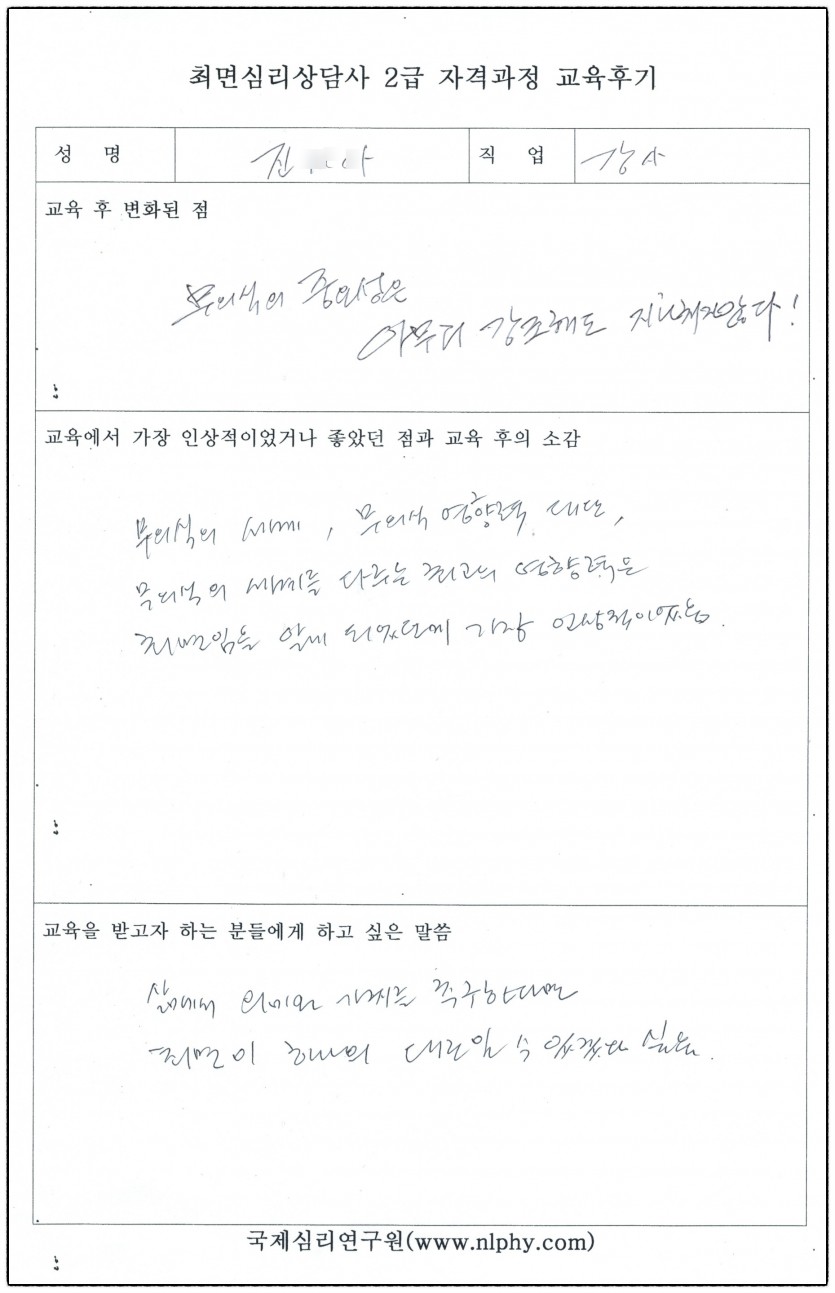 최면심리상담사 2급 자격과정 교육후기
성 명 진 아 직 업 강사
교육 후 변화된 점
무의식의 중요성은
아무리 강조해도 지나치지않다!
교육에서 가장 인상적이었거나 좋았던 점과 교육 후의 소감
무의식의 세계, 무의식 영향력 대단,
무의식의 세계를 다루는 최고의 영향력은
최면임을 알게 되었단게 가장 인상적이었음.
교육을 받고자 하는 분들에게 하고 싶은 말씀
삶에서 의미와 가치를 추구한다면
최면이 하나의 대안일 수 있겠다 싶음.
국제심리연구원(www.nlphy.com)